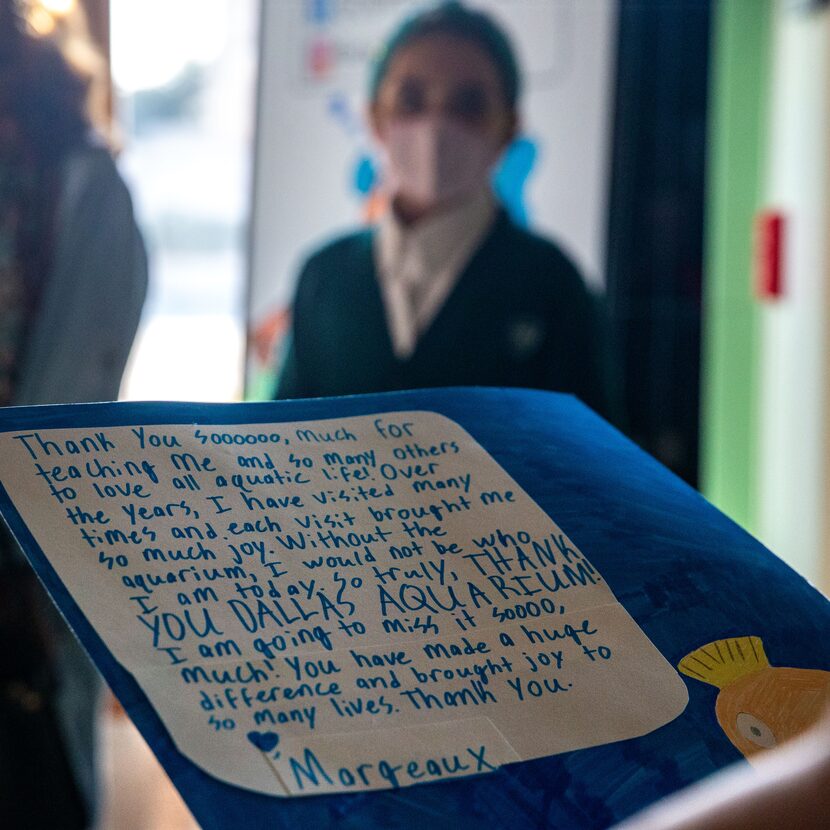 Thank You sooooooo, much for
teaching me and so many others
to love all aquatic life! Over
the years, I have visited many
times and each visit brought me
so much joy. Without the
aquarium, I would not be who
I am today, so truly, THANK
YOU DALLAS AQUARIUM!
I am going to miss it soooo,
much! You have made a huge
difference and brought joy to
so many lives. Thank You.
Margeaux